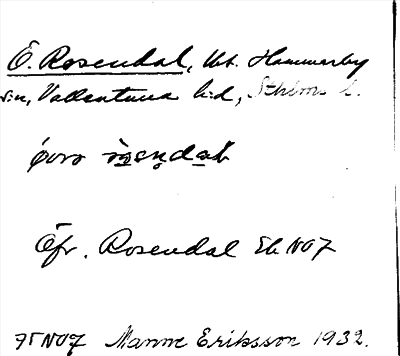 Ö. Rosendal, Ut. Hammarby
s:n, Vallentuna h:d, Sthlms l.
Öfr. Rosendal Eb NO7
75 NO7 Manne Eriksson 1932.